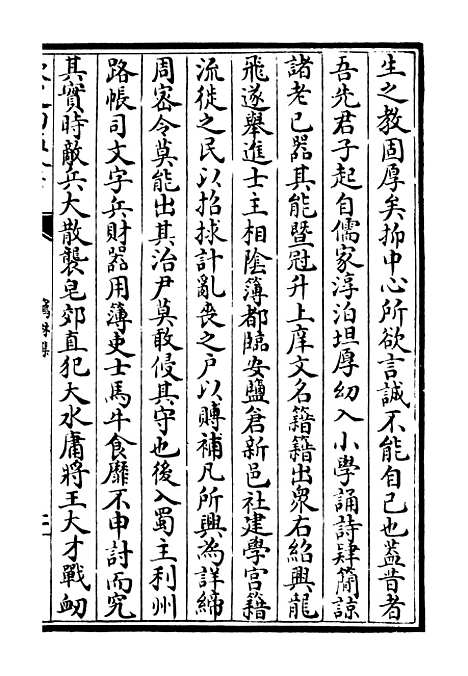 生之教固厚矣抑中心所欲言誠不能自已也蓋昔者
吾先君子起自儒家淳泊坦厚幼入小學誦詩肄簡諒
諸老已器其能暨冠升上庠文名籍籍出衆右紹興龍
飛遂舉進士主相隂簿都臨安鹽倉新邑社建學宫籍
流徙之民以招捄計亂喪之户以賻補凡所興為詳締
周宻令莫能出其治尹莫敢侵其守也後入蜀主利州
路帳司文字兵財器用簿吏士馬牛食靡不申討而究
其實時敵兵大散襲皂郊直犯大水庸將王大才戰衂